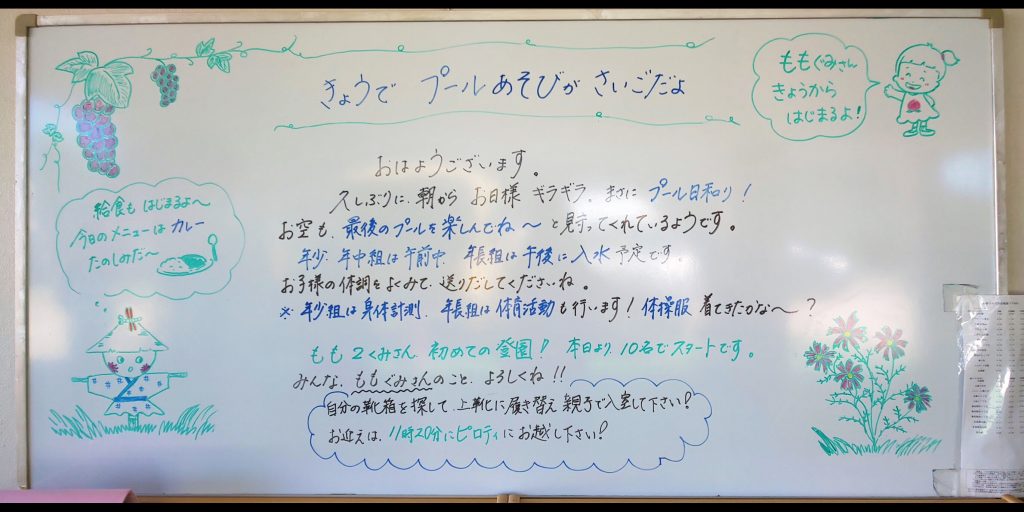 きょうで プールあそびが さいごだよ
ももぐみさん
きょうから
はじまるよ!
おはようございます。
久しぶりに、朝から お日様 ギラギラ。まさに プール日和り!
お空も、最後のプールを楽しんでね〜 と見守ってくれているようです。
年少、年中組は午前中、年長組は午後に入水予定です。
お子様の体調をよくみて、送りだしてくださいね。
※年少組は身体計測、年長組は体育活動も行います!体操服 着てきたかな〜?
給食も はじまるよ〜
今日のメニューは カレー
たのしみだ〜
もも2くみさん 初めての登園! 本日より、10名でスタートです。
みんな、ももぐみさんのこと、よろしくね!!
自分の靴箱を探して、上靴に履き替え 親子で入室して下さい!
お迎えは、11時20分にピロティにお越し下さい!